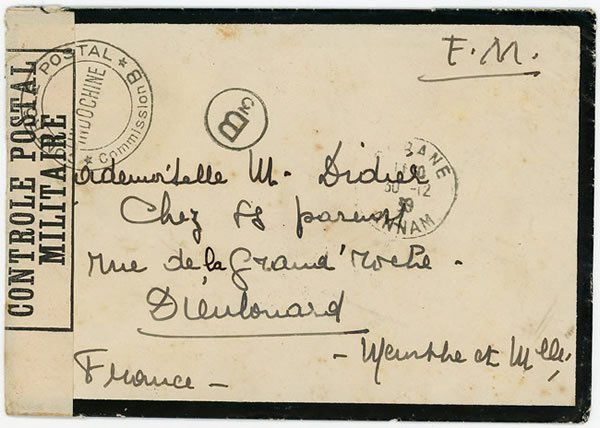 F.M.
CONTROLE POSTAL
MILITAIRE
POSTAL
INDOCHINE
Commission
B
BANE
30-12
39
NNAM
ademoiselle M. Didier
Chez ss parent
rue de la Grand'roche -
Dieulouard
- Meurthe et Mlle,
France -